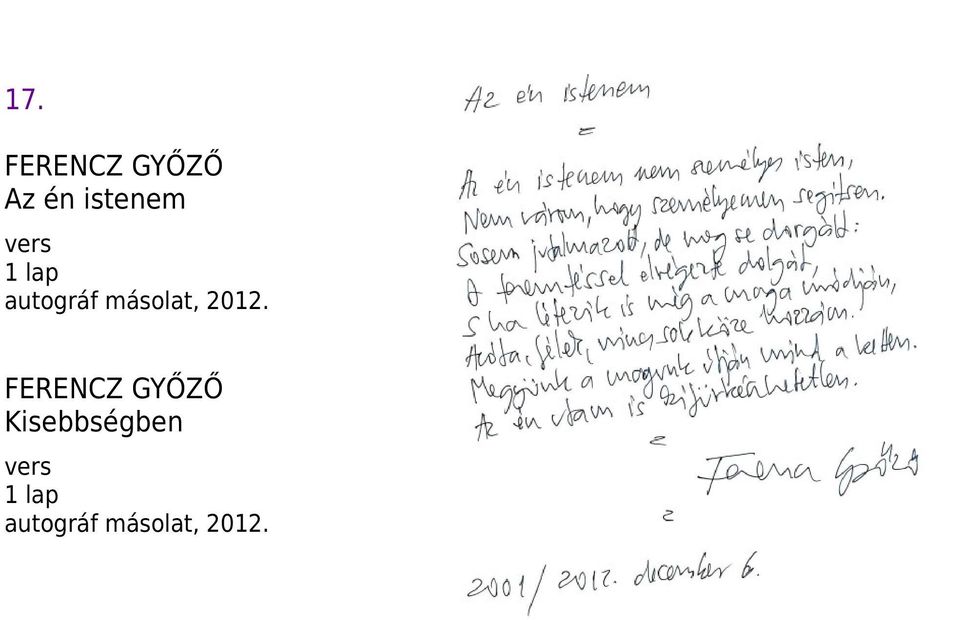 17.
FERENCZ GYŐZŐ
Az én istenem
vers
1 lap
autográf másolat, 2012.
FERENCZ GYŐZŐ
Kisebbségben
vers
1 lap
autográf másolat, 2012.
Az én istenem
Az én istenem nem személyes isten,
Nem várom, hogy személyemen segítsen.
Sosem jutalmazott, de meg se dorgált:
A teremtéssel elvégezte dolgát,
S ha létezik is még a maga módján,
Azóta, félek, nincs sok köze hozzám.
Megyünk a magunk útján mind a ketten.
Az én utam is kifürkészhetetlen.
Ferencz Győző
2001/2012. december 6.